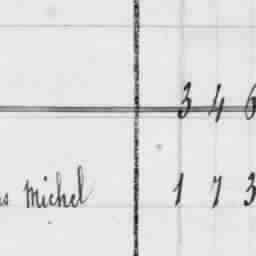 3 4 6
Michel 1 7 3